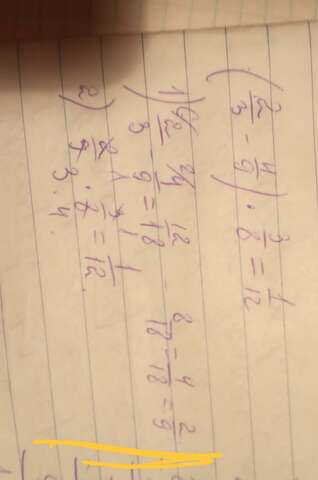 (2/3 - 4/9) · 3/8 = 1/12
1) 2/3 - 4/9 = 12/18 - 8/18 = 4/18 = 2/9
2) 2/9 · 3/8 = 1/12
3 . 4 .